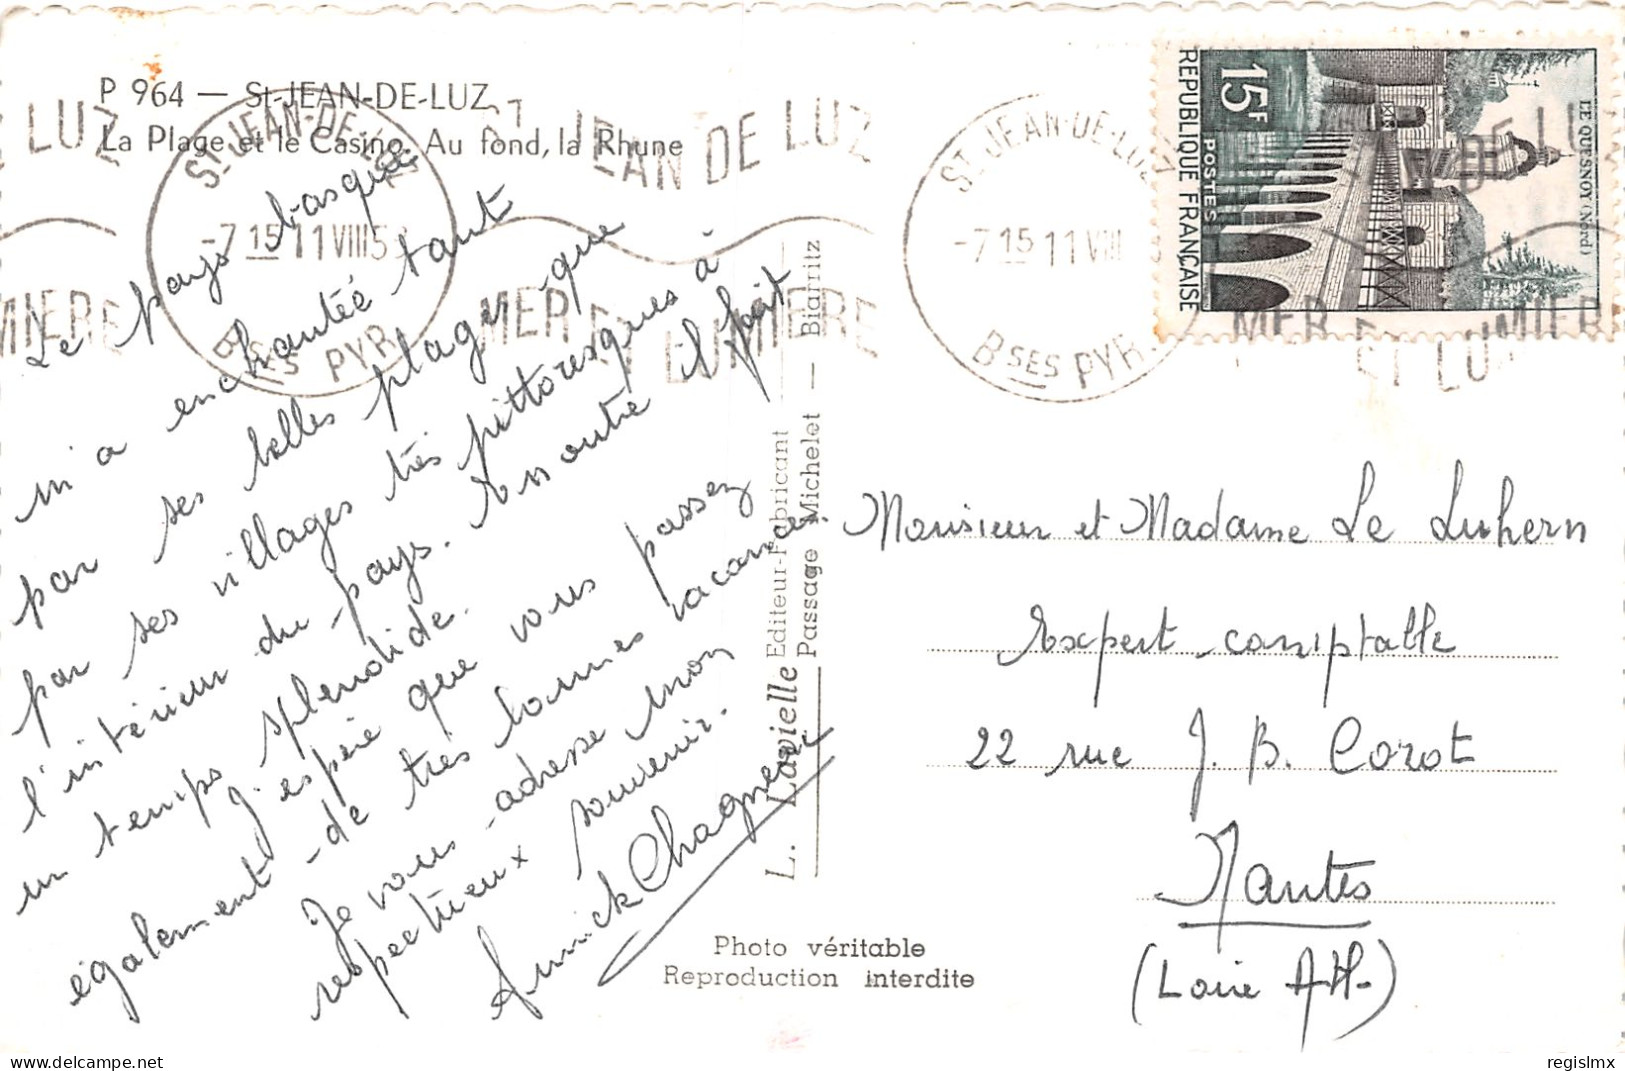 P 964 — St-JEAN-DE-LUZ
La Plage et le Casino. Au fond, la Rhune
Le pays basque
m'a enchantée tant
par ses belles plages que
par ses villages très pittoresques à
l'intérieur du pays. En outre il fait
un temps splendide.
J'espère que vous passez
également de très bonnes vacances.
Je vous adresse mon
respectueux souvenir.
Annick Chagneau
L. Lavielle Editeur-Fabricant
Passage Michelet — Biarritz
Photo véritable
Reproduction interdite
ST JEAN-DE-LUZ
-7 15 11 VIII 5
Bses PYR.
ST JEAN DE LUZ
MER ET LUMIERE
ST JEAN-DE-LUZ
-7 15 11 VIII
Bses PYR.
MER ET LUMIERE
15F
POSTES
REPUBLIQUE FRANÇAISE
LE QUESNOY (Nord)
Monsieur et Madame Le Luhern
Expert comptable
22 rue J. B. Corot
Nantes
(Loire Atl.)
regislmx